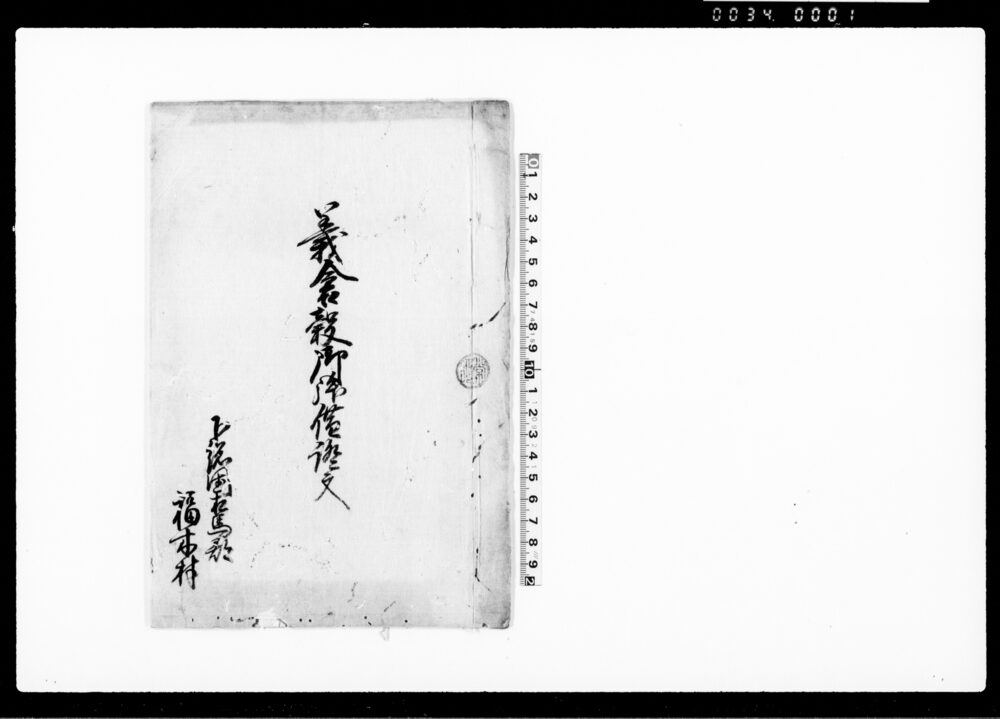 0034 0001
義倉穀御拝借證文
下総国相馬郡
福木村
0 1 2 3 4 5 6 7 8 9 10 1 2 3 4 5 6 7 8 9 2